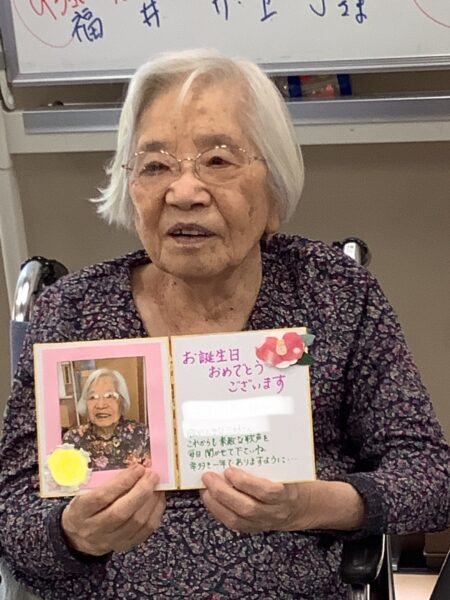 福井
さま
お誕生日
おめでとう
ございます
これからも素敵な歌声を
毎日聞かせて下さいね
幸多き一年でありますように…